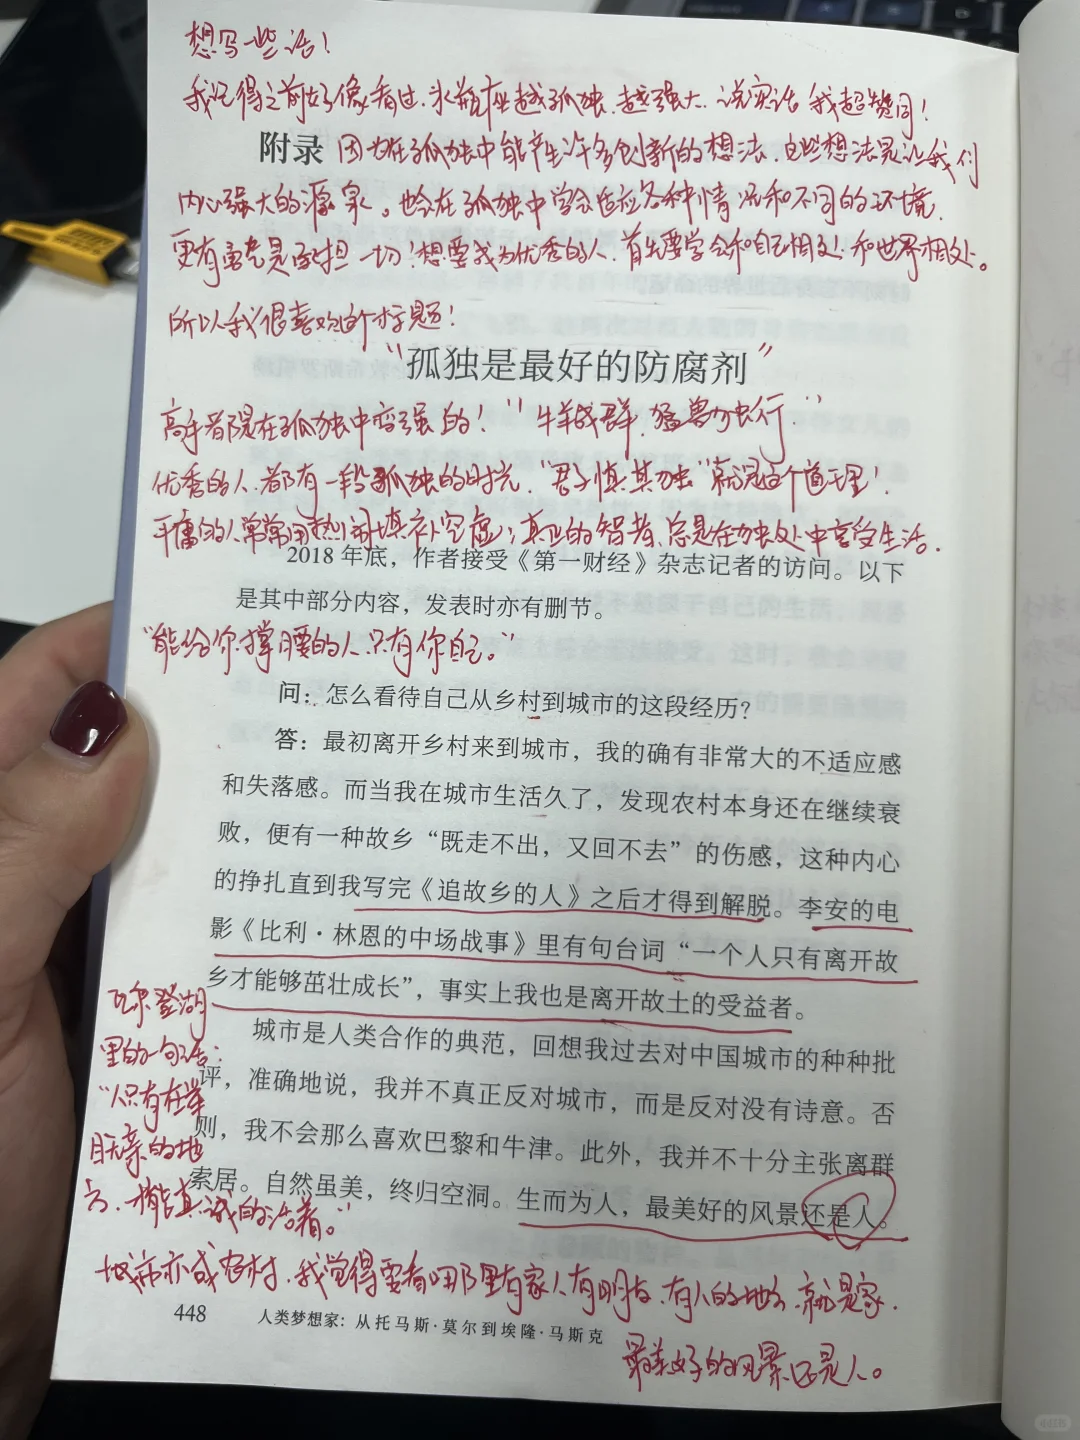 想写一些话!
我记得之前好像看过,水瓶座越孤独,越强大,说实话 我超赞同!
附录 因为在孤独中能产生许多创新的想法,这些想法是让我们
内心强大的源泉。也会在孤独中学会适应各种情况和不同的环境,
更有勇气是承担一切!想要成为优秀的人,首先要学会和自己相处 和世界相处。
所以我很喜欢的个标题!
“孤独是最好的防腐剂”
高手都是在孤独中变强的!“牛羊成群,猛兽独行”
优秀的人,都有一段孤独的时光,“君子慎其独”就是这个道理!
平庸的人常常用热闹填补空虚;真正的智者,总是在独处中享受生活.
2018 年底,作者接受《第一财经》杂志记者的访问。以下
是其中部分内容,发表时亦有删节。
“能给你撑腰的人只有你自己。”
问:怎么看待自己从乡村到城市的这段经历?
答:最初离开乡村来到城市,我的确有非常大的不适应感
和失落感。而当我在城市生活久了,发现农村本身还在继续衰
败,便有一种故乡“既走不出,又回不去”的伤感,这种内心
的挣扎直到我写完《追故乡的人》之后才得到解脱。李安的电
影《比利·林恩的中场战事》里有句台词“一个人只有离开故
乡才能够茁壮成长”,事实上我也是离开故土的受益者。
城市是人类合作的典范,回想我过去对中国城市的种种批
评,准确地说,我并不真正反对城市,而是反对没有诗意。否
则,我不会那么喜欢巴黎和牛津。此外,我并不十分主张离群
索居。自然虽美,终归空洞。生而为人,最美好的风景还是人。
瓦尔登湖
里的一句话:
“人只有在举
目无亲的地
方,才能真诚的活着。”
城市亦或农村,我觉得要看哪里有家人有朋友,有人的地方,就是家.
最美好的风景还是人。
448 人类梦想家:从托马斯·莫尔到埃隆·马斯克